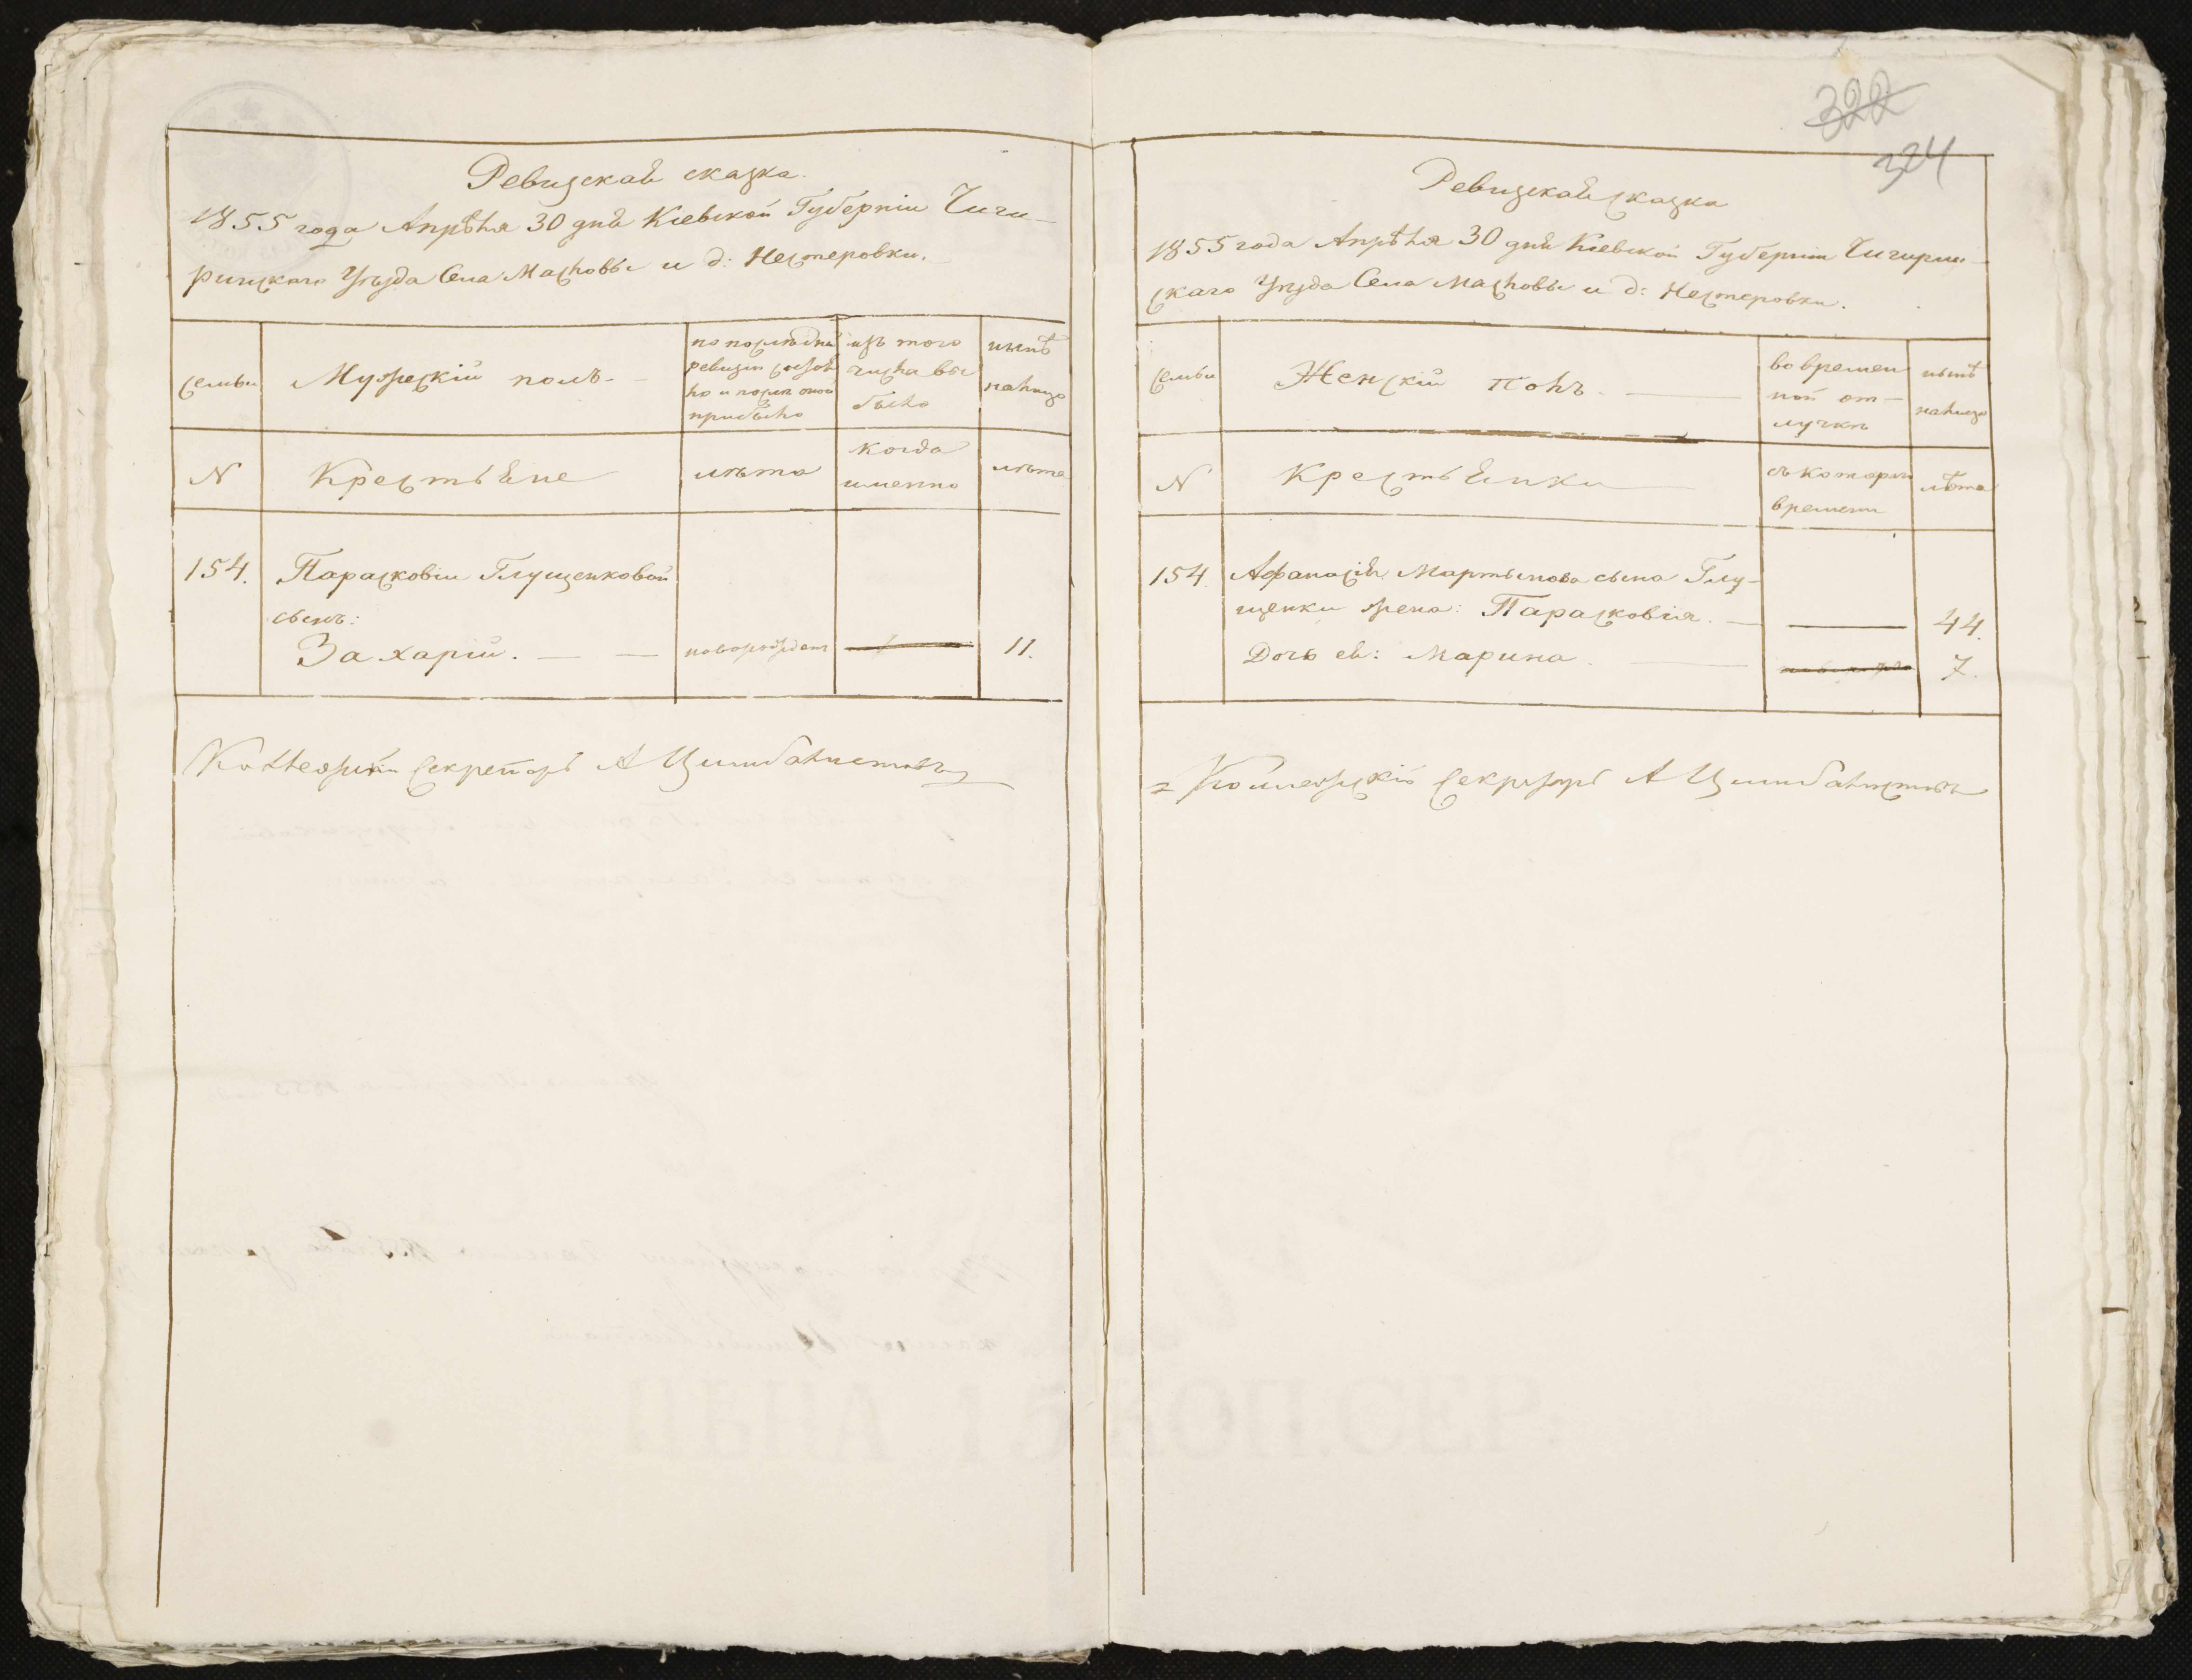 Ревизская сказка.
1855 года Апрѣля 30 дня Кіевской Губерніи Чиги-
ринскаго Уѣзда Села Масловы и д: Нестеровки.
семьи
Мужескій полъ.
по последней
ревизіи состоя
ло и послѣ оной
прибыло
изъ того
числа вы
было
нынѣ
налицо
N
Крестьяне
лѣта
когда
именно
лѣта
154.
Парасковіи Глущенковой
сынъ:
Захарій. — —
новорожденъ
11.
Коллежскій Секретарь А
322
324
Ревизская сказка
1855 года Апрѣля 30 дня Кіевской Губерніи Чигирин-
скаго Уѣзда Села Масловы и д: Нестеровки.
семьи
Женскій полъ. —
во времен
ной от-
лучкѣ
нынѣ
налицо
N
Крестьянки
съ котораго
времени
лѣта
154.
Афанасія Мартынова сына Глу-
щенки жена: Парасковія. —
44.
Дочь ея: Марина. —
7.
Коллежскій Секретарь А